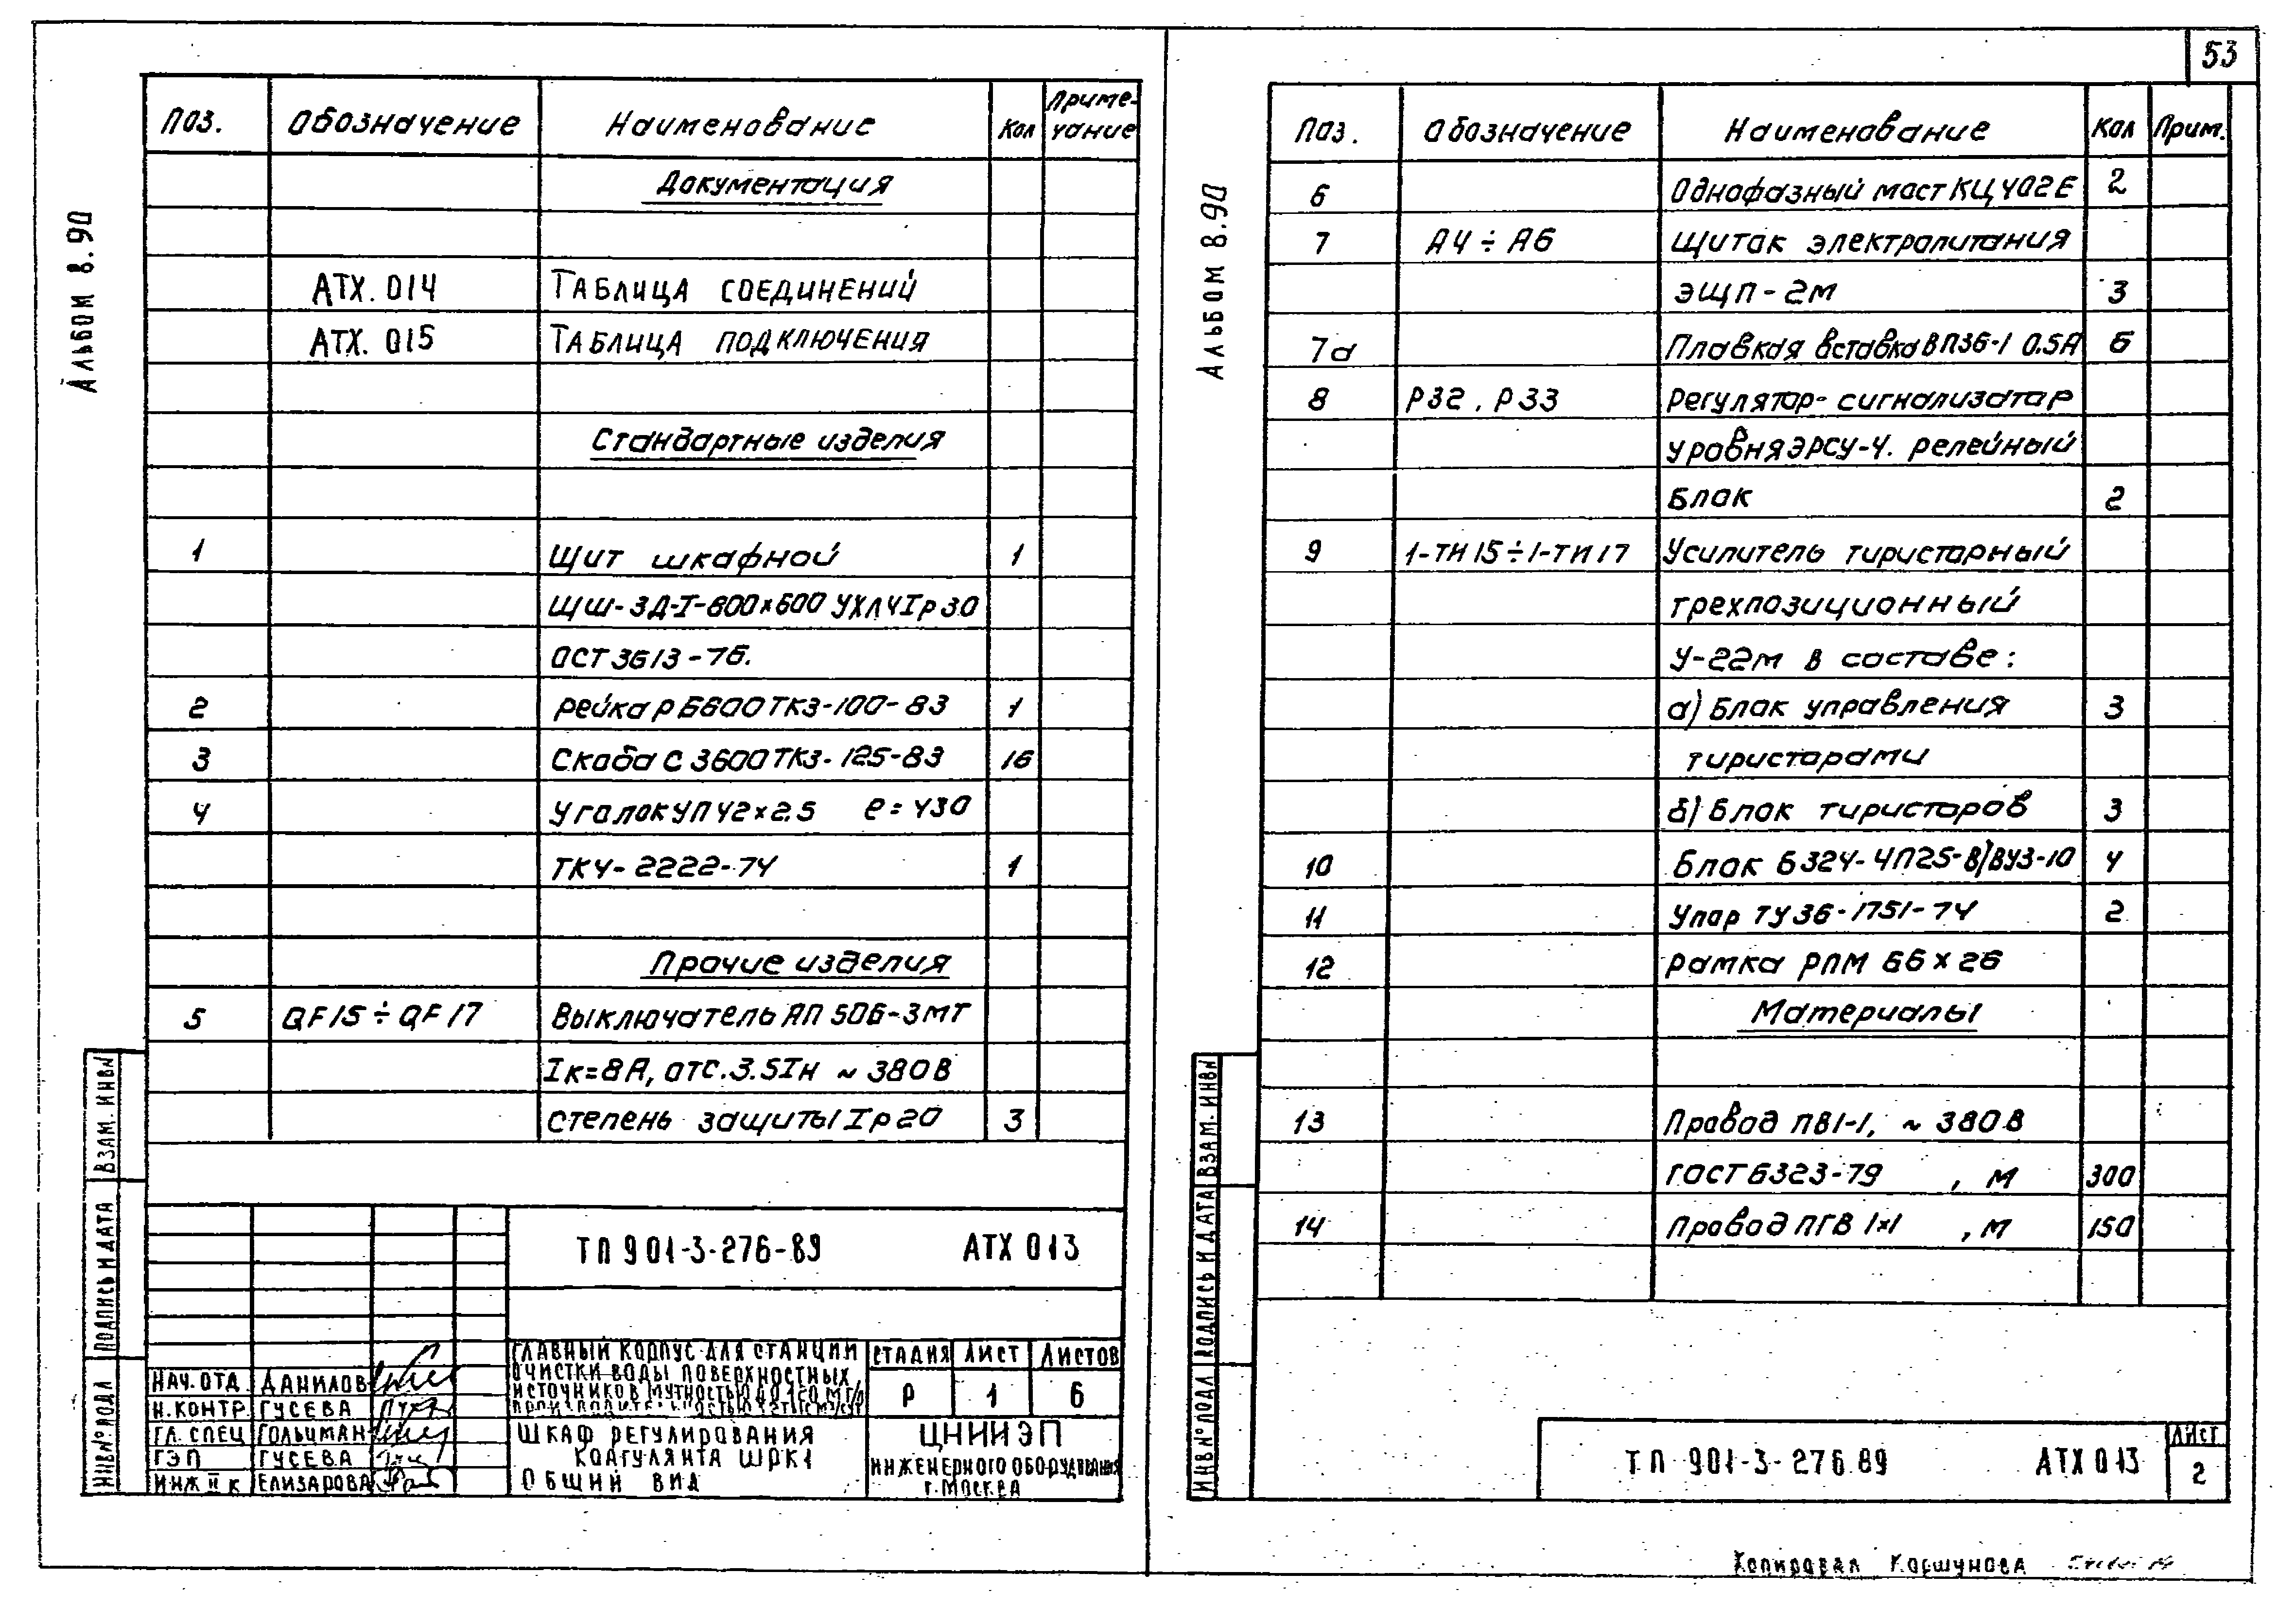 53
Альбом 8.90
Поз. Обозначение Наименование Кол Приме-
чание
Документация
АТХ. 014 Таблица соединений
АТХ. 015 Таблица подключения
Стандартные изделия
1 Щит шкафной 1
ЩШ-ЗД-I-600×600 УХЛ4 Iр30
ОСТ 3613-76.
2 Рейка Р Б600 ТК3-100-83 1
3 Скоба С 3600 ТК3-125-83 16
4 Уголок УП 42×2.5 ℓ=430
ТК4-2222-74 1
Прочие изделия
5 QF15÷QF17 Выключатель АП 50Б-3МТ
Iк=8А, отс.3.5Iн ~ 380В
степень защиты Iр20 3
ТП 901-3-276-89 АТХ 013
Главный корпус для станции
очистки воды поверхностных
источников мутностью до 120 мг/л
Стадия Лист Листов
Р 1 6
Нач. отд Данилов
Н. контр Гусева
Гл. спец Гольцман
ГЭП Гусева
Инж II к Елизарова
Шкаф регулирования
коагулянта ШРК1
Общий вид
ЦНИИЭП
инженерного оборудования
г. Москва
Взам. инв№
Подпись и дата
Инв № подл
Альбом 8.90
Поз. Обозначение Наименование Кол Прим.
6 Однофазный мост КЦ402Е 2
7 А4÷А6 Щиток электропитания
ЭЩП-2м 3
7а Плавкая вставка ВП3б-1 0.5А 6
8 Р32, Р33 Регулятор-сигнализатор
уровня ЭРСУ-4. релейный
блок 2
9 1-ТИ15÷1-ТИ17 Усилитель тиристорный
трехпозиционный
У-22м в составе:
а) Блок управления 3
тиристорами
б) Блок тиристоров 3
10 Блок Б324-4П25-В/ВУЗ-10 4
11 Упор ТУ36-1751-74 2
12 Рамка РПМ 66×26
Материалы
13 Провод ПВ1-1, ~ 380В
ГОСТ 6323-79 , м 300
14 Провод ПГВ 1×1 , м 150
Взам. инв№
Подпись и дата
Инв № подл
ТП 901-3-276.89 АТХ 013
Лист
2
Копировал Коршунова